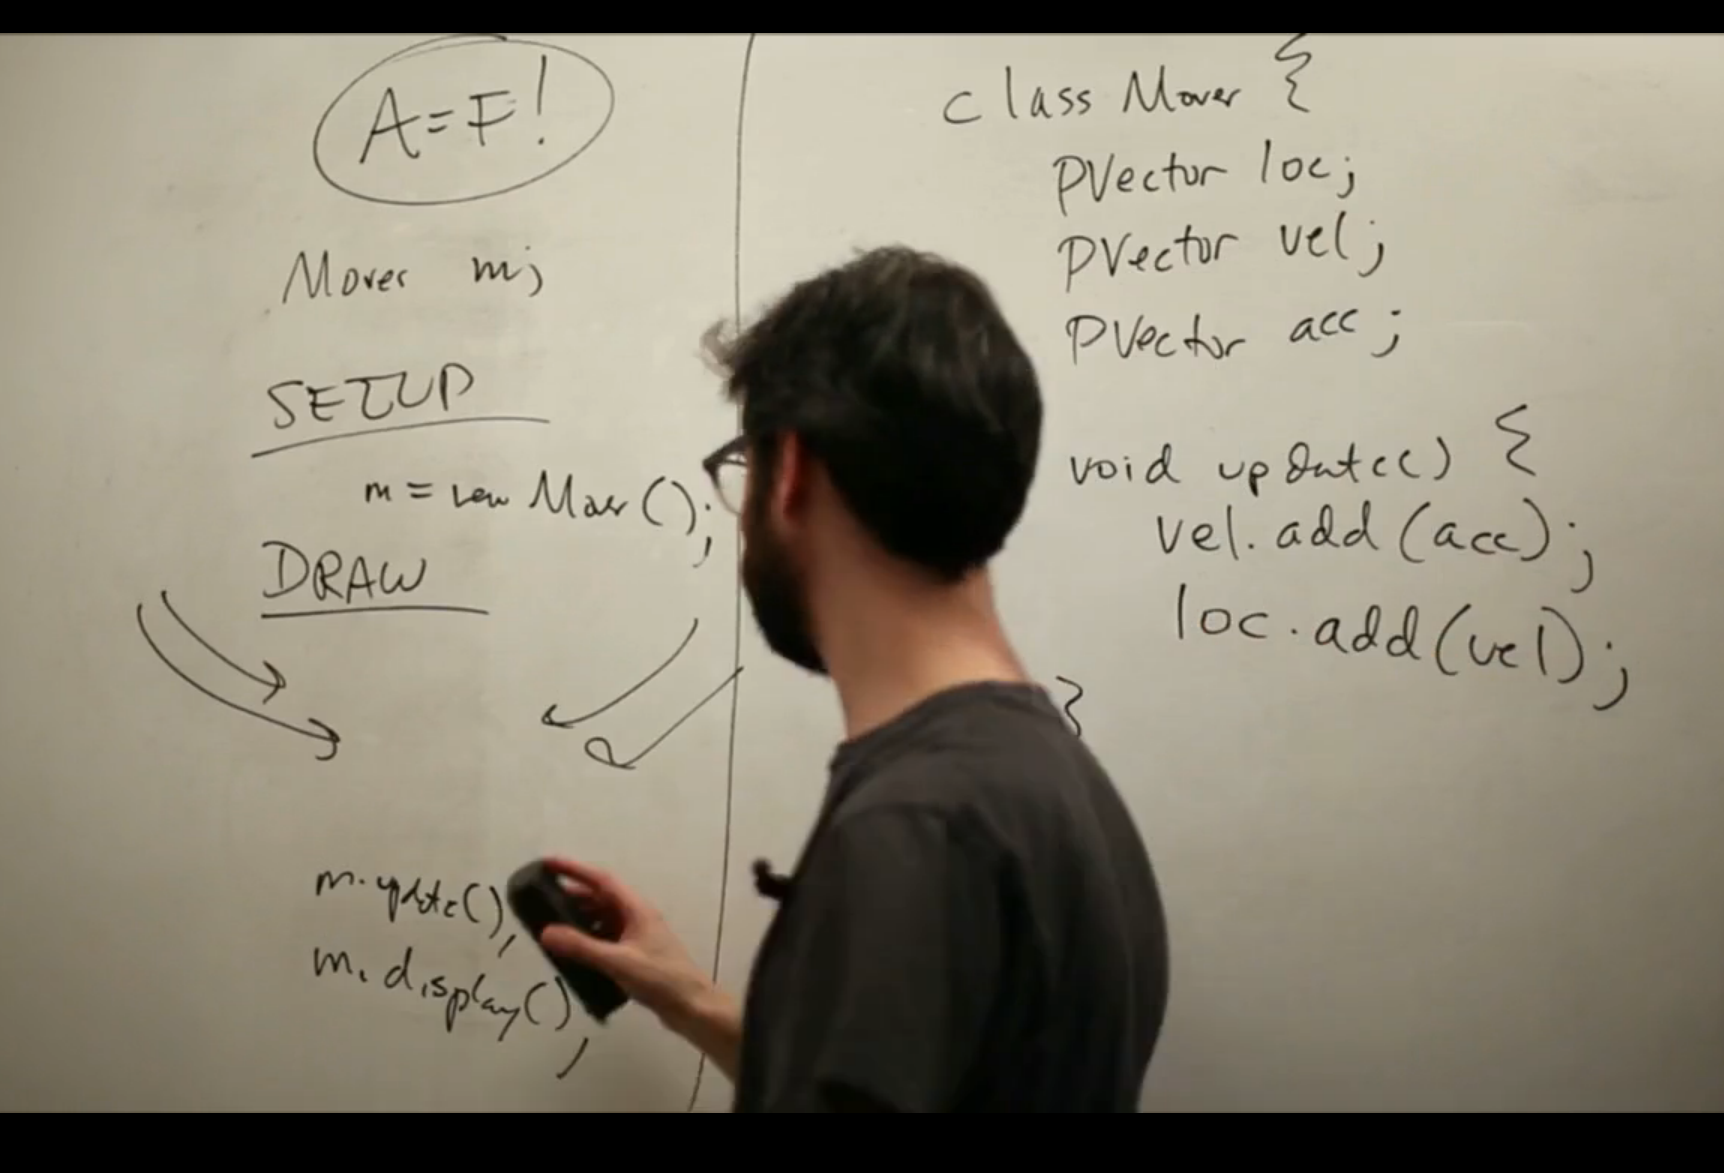 A=F!
Mover m;
SETUP
m = new Mover();
DRAW
m.update();
m.display();
class Mover {
PVector loc;
PVector vel;
PVector acc;
void update() {
vel.add(acc);
loc.add(vel);
}